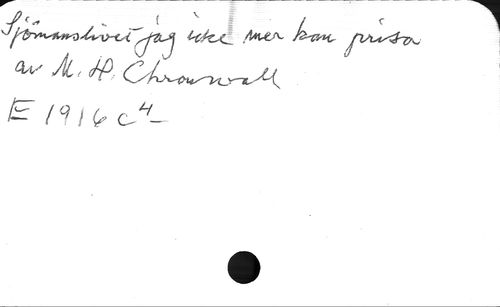 Sjömanslivet jag icke mer kan prisa
av M. H. Chronwall
E 1916 c 4